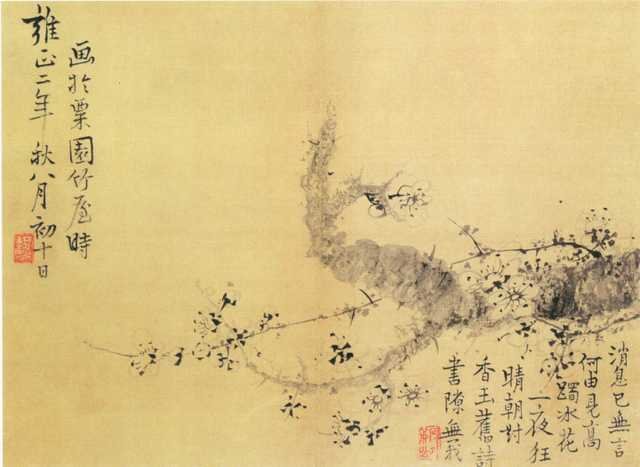 消息已無言
何由見高
躅冰花
一夜狂
晴朝对
香玉舊詩
書隙無我
画於粟園竹屋時
雍正二年秋八月初十日